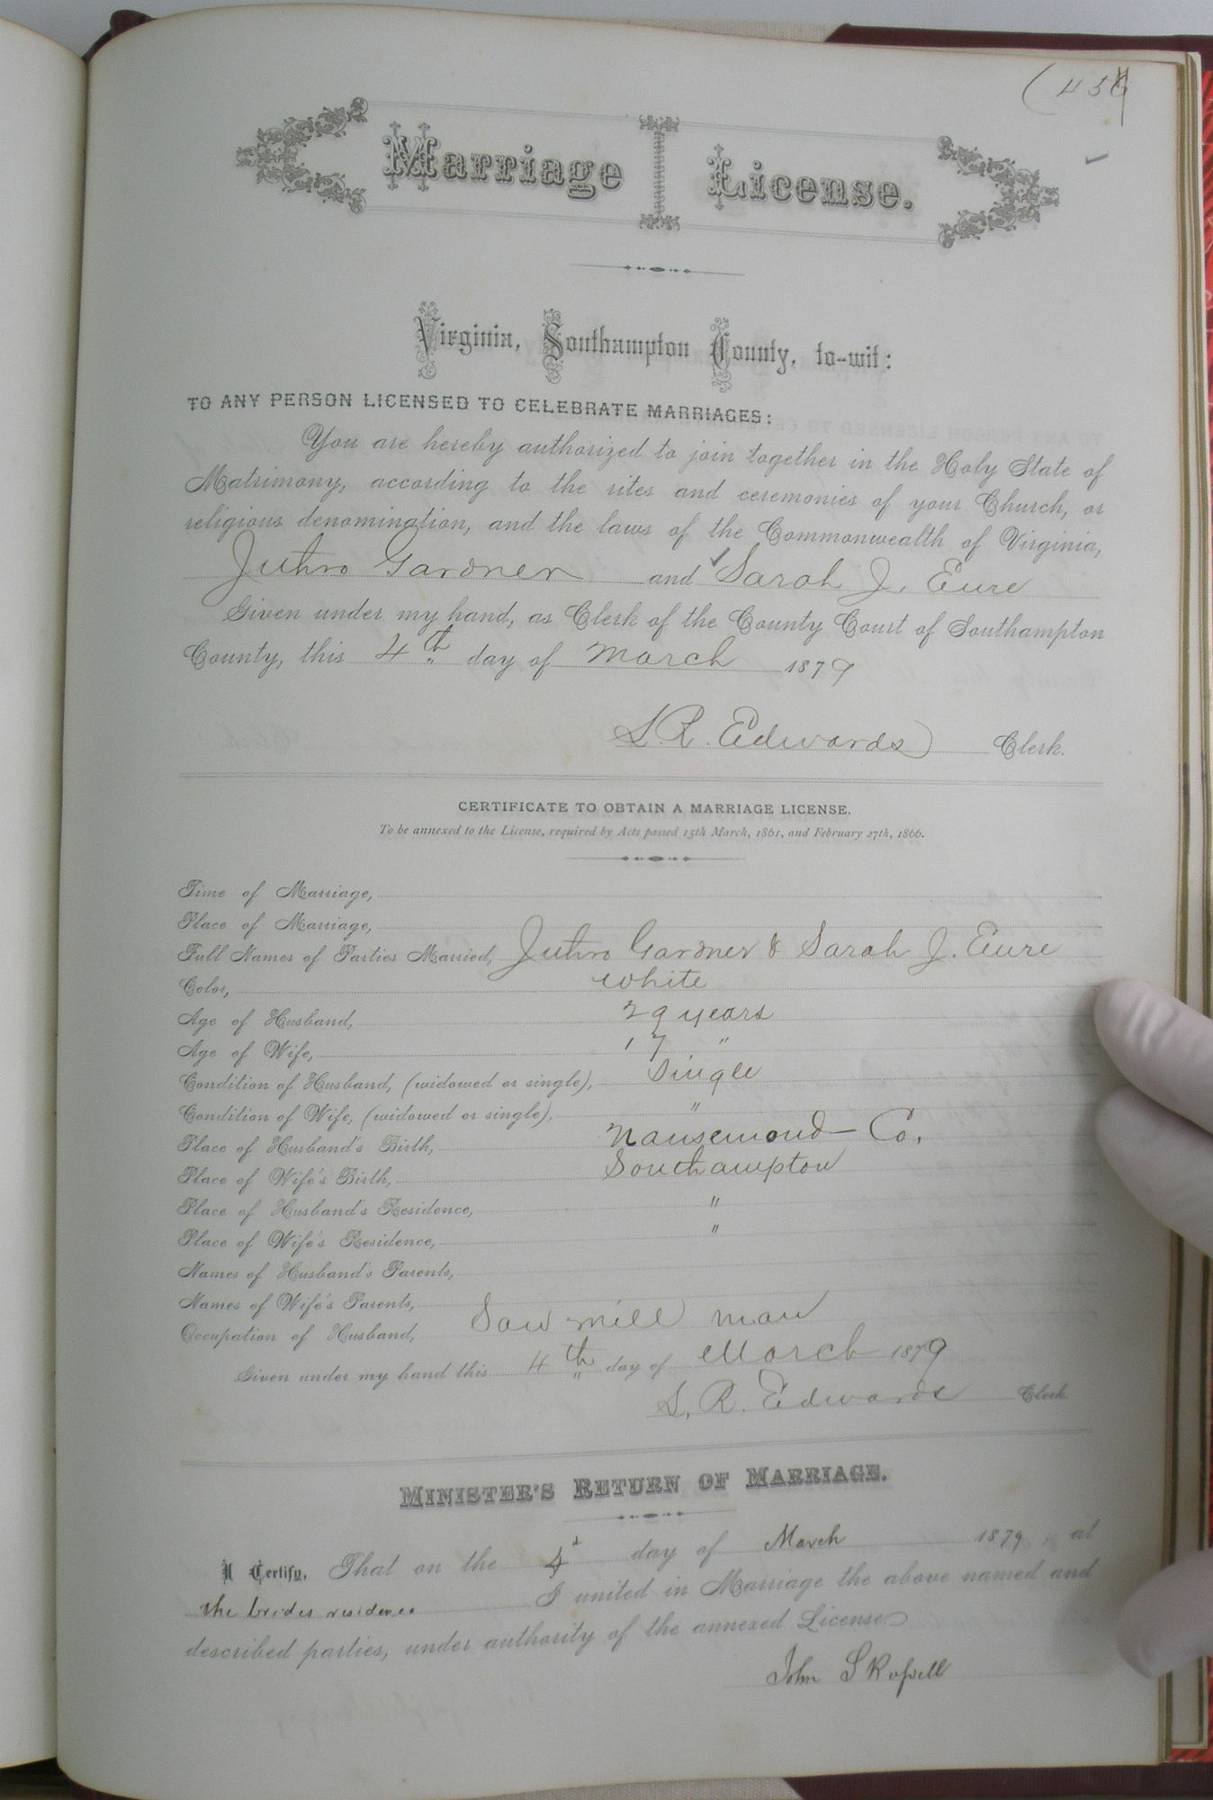 Marriage License.
Virginia, Southampton County, to-wit:
TO ANY PERSON LICENSED TO CELEBRATE MARRIAGES:
You are hereby authorized to join together in the Holy State of
Matrimony, according to the rites and ceremonies of your Church, or
religious denomination, and the laws of the Commonwealth of Virginia,
Juthro Gardner and Sarah J. Eure
Given under my hand, as Clerk of the County Court of Southampton
County, this 4th day of March 1879
L. R. Edwards Clerk.
CERTIFICATE TO OBTAIN A MARRIAGE LICENSE.
To be annexed to the License, required by Acts passed 15th March, 1861, and February 27th, 1866.
Time of Marriage,
Place of Marriage,
Full Names of Parties Married, Juthro Gardner & Sarah J. Eure
Color, White
Age of Husband, 29 years
Age of Wife, 17 "
Condition of Husband, (widowed or single), Single
Condition of Wife, (widowed or single), "
Place of Husband's Birth, Nansemond Co.
Place of Wife's Birth, Southampton
Place of Husband's Residence, "
Place of Wife's Residence, "
Names of Husband's Parents,
Names of Wife's Parents,
Occupation of Husband, Saw mill man
Given under my hand this 4th day of March 1879
L. R. Edwards Clerk
MINISTER'S RETURN OF MARRIAGE.
I Certify, That on the 4 day of March 1879, at
the brides residence I united in Marriage the above named and
described parties, under authority of the annexed License
John S